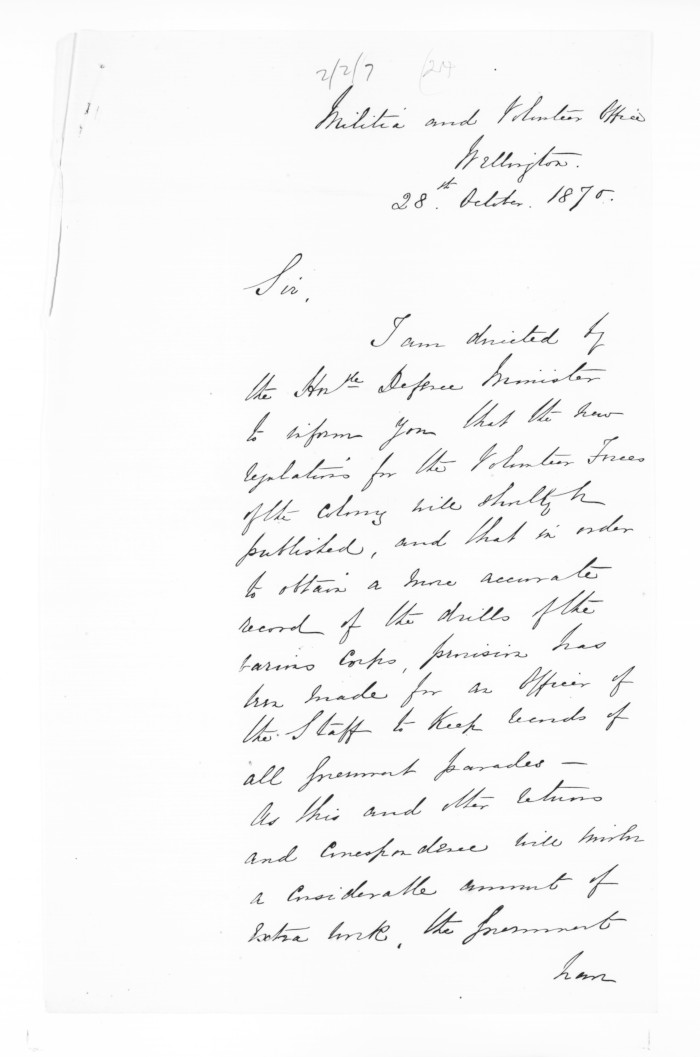 2/2/7 (24
Militia and Volunteer Office
Wellington.
28th. October. 1870.
Sir,
I am directed by
the Honble Defence Minister
to inform you that the new
regulations for the Volunteer Forces
of the Colony will shortly be
published, and that in order
to obtain a more accurate
record of the drills of the
various Corps, provision has
been made for an Officer of
the Staff to keep records of
all Government parades —
As this and other returns
and correspondence will involve
a considerable amount of
extra work, the Government
have